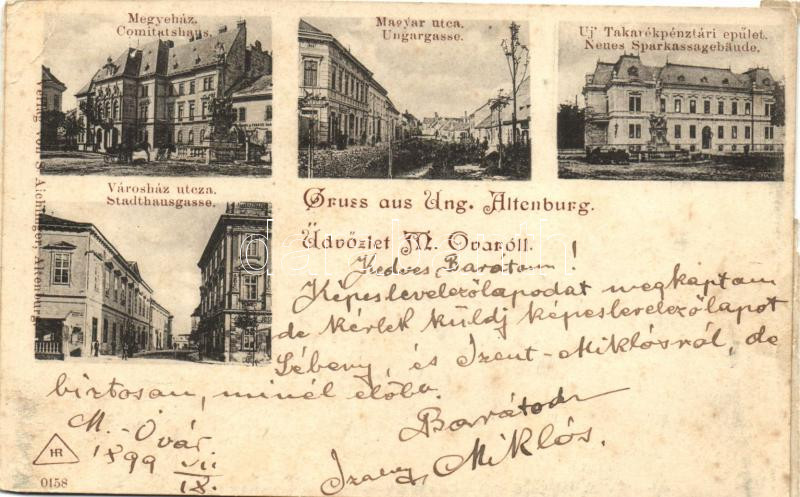 Megyeház.
Comitatshaus.
Magyar utca.
Ungargasse.
Uj Takarékpénztári epület.
Neues Sparkassagebäude.
Verlag von S. Aichinger, Altenburg.
Városház utcza.
Stadthausgasse.
Gruss aus Ung. Altenburg.
Üdvözlet M. Ovaról!.
Kedves Barátom!
Képeslevelezőlapodat megkaptam
de kérlek küldj képeslevelezőlapot
Lébeny, és Szent-Miklósról, de
biztosan, minél előbb.
Barátod
M.-Óvár
1899 VII/18.
Miklós.
HR
0158